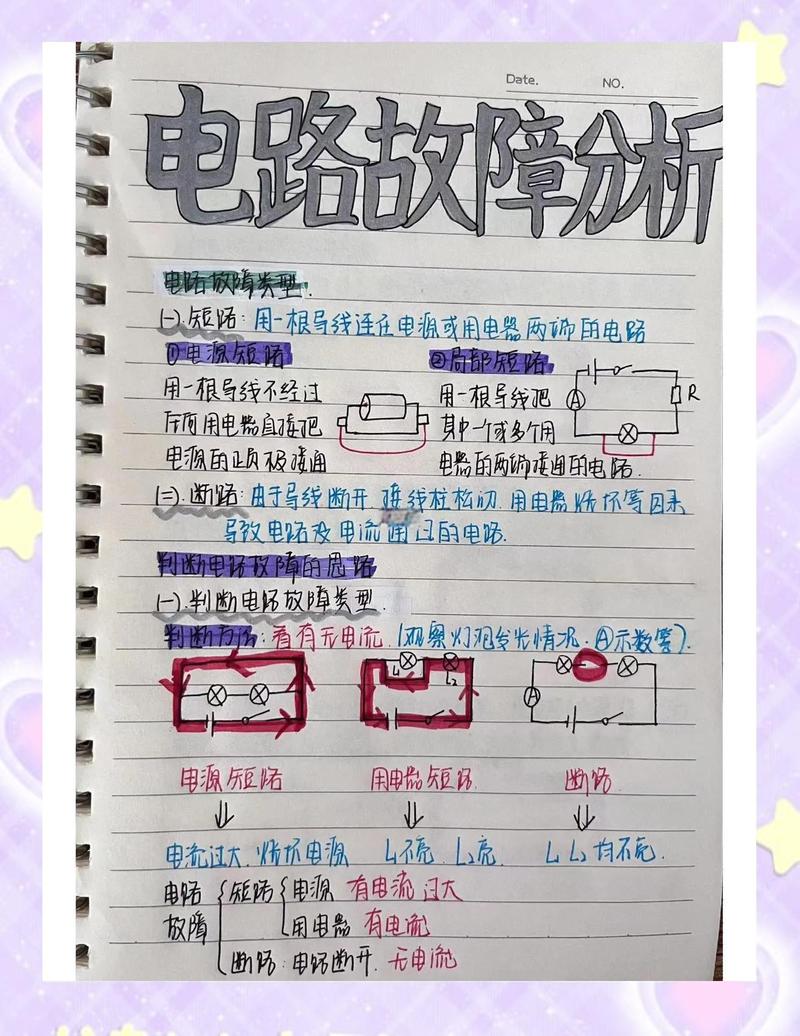 Date. NO.
电路故障分析
电路故障类型.
(一).短路: 用一根导线连在电源或用电器两端的电路
①电源短路
用一根导线不经过
任何用电器直接把
电源的正负极接通
②局部短路
用一根导线把
其中一个或多个用
电器的两端接通的电路.
A
R
(二).断路: 由于导线断开 接线柱松动 用电器烧坏等因素
导致电路没电流通过的电路.
判断电路故障的思路
(一).判断电路故障类型.
判断方法: 看有无电流. (观察灯泡发光情况. Ⓐ示数等).
L₁
L₂
A
电源短路 用电器短路. 断路.
⇓ ⇓ ⇓
电流过大. 烧坏电源 L₁不亮. L₂亮. L₁ L₂ 均不亮.
电路故障
短路 电源 有电流过大
用电器 有电流
断路: 电路断开. 无电流